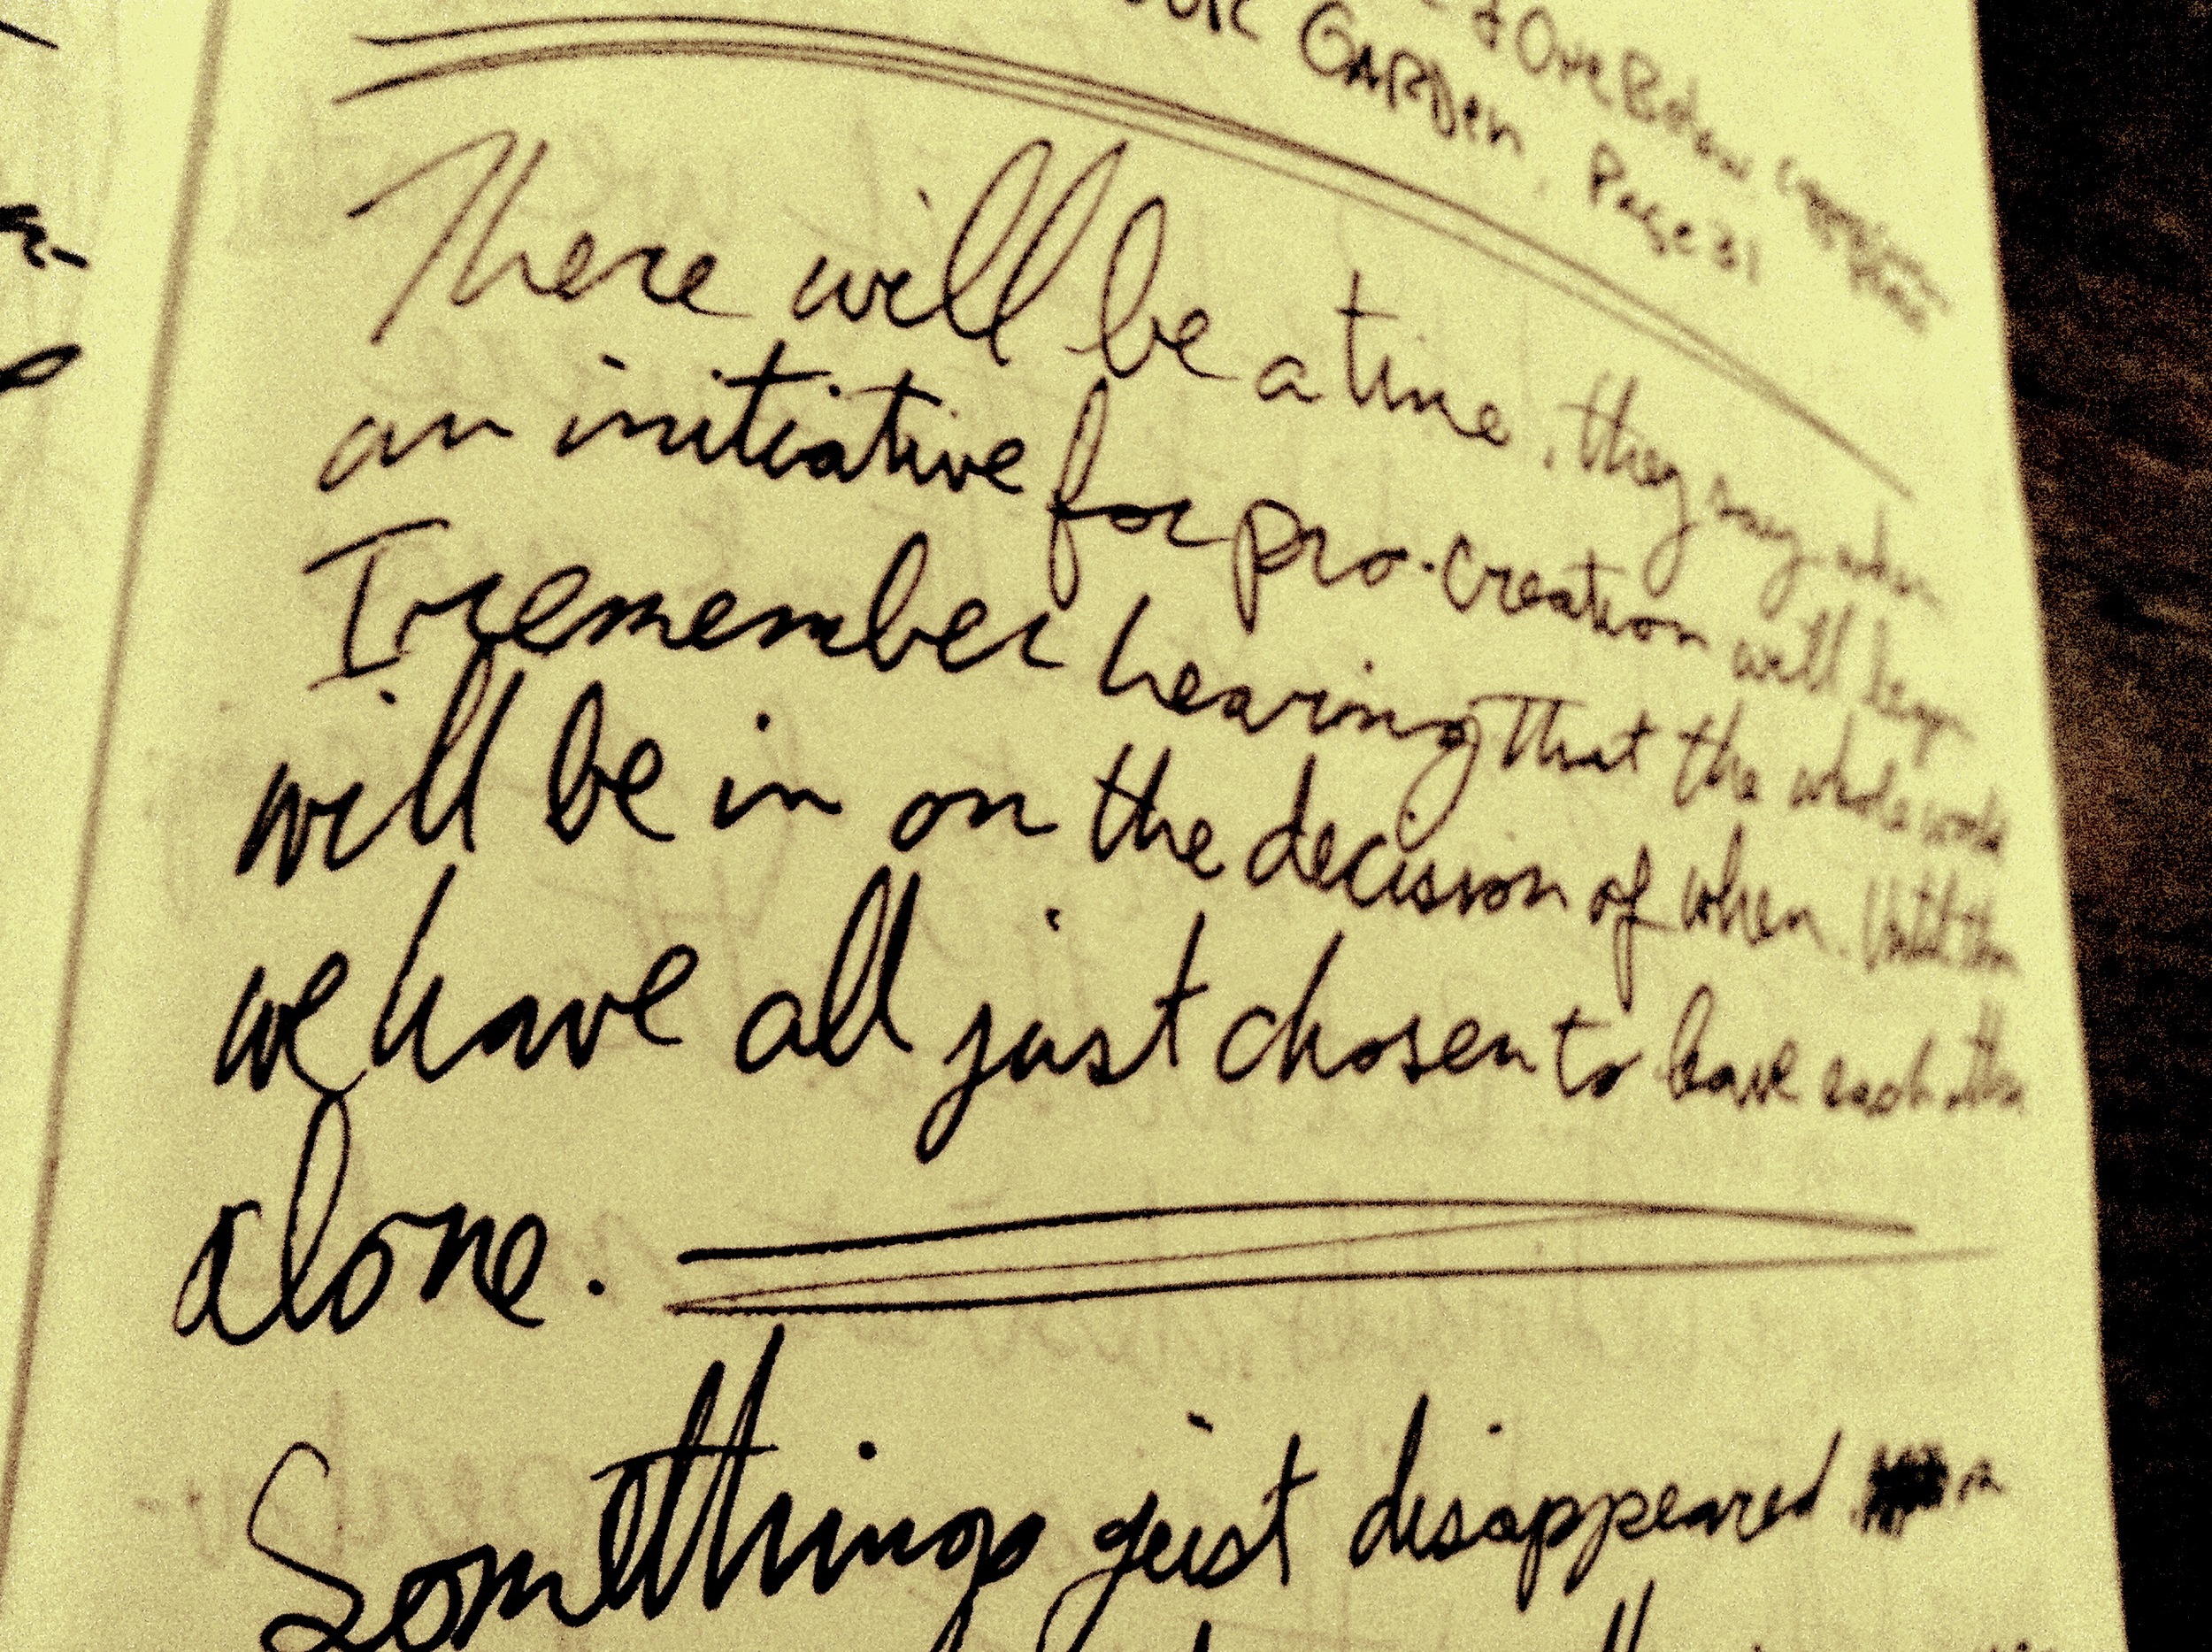 & One Below
OUR GARDEN Page 31
There will be a time, they say when
an initiative for pro-creation will begin
I remember hearing that the whole world
will be in on the decision of when. Until then
we have all just chosen to leave each other
alone.
Somethings geist disappeared